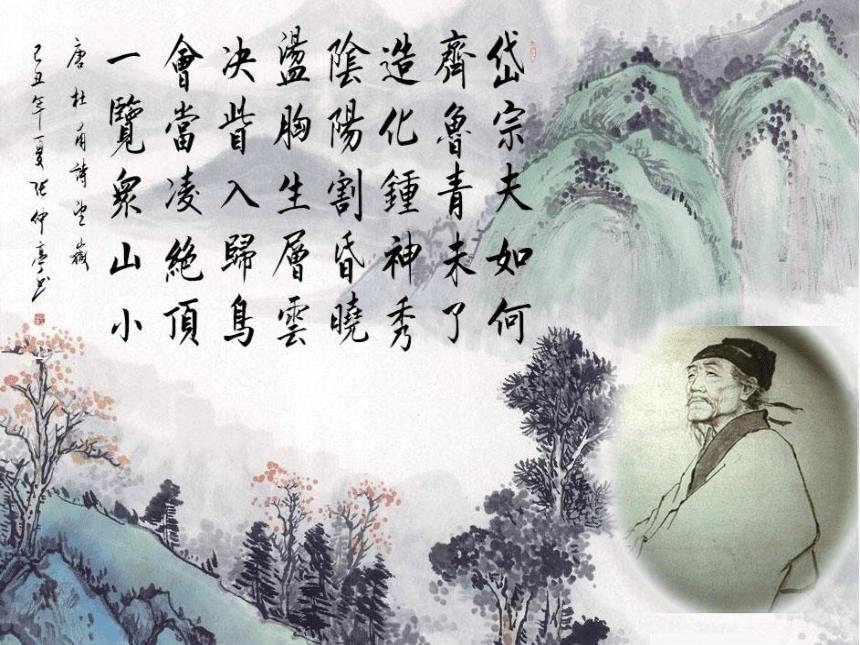 岱宗夫如何
齊魯青未了
造化鍾神秀
陰陽割昏曉
盪胸生層雲
决眥入歸鳥
會當凌絶頂
一覽衆山小
唐杜甫詩望嶽
己丑年夏張仲亭書